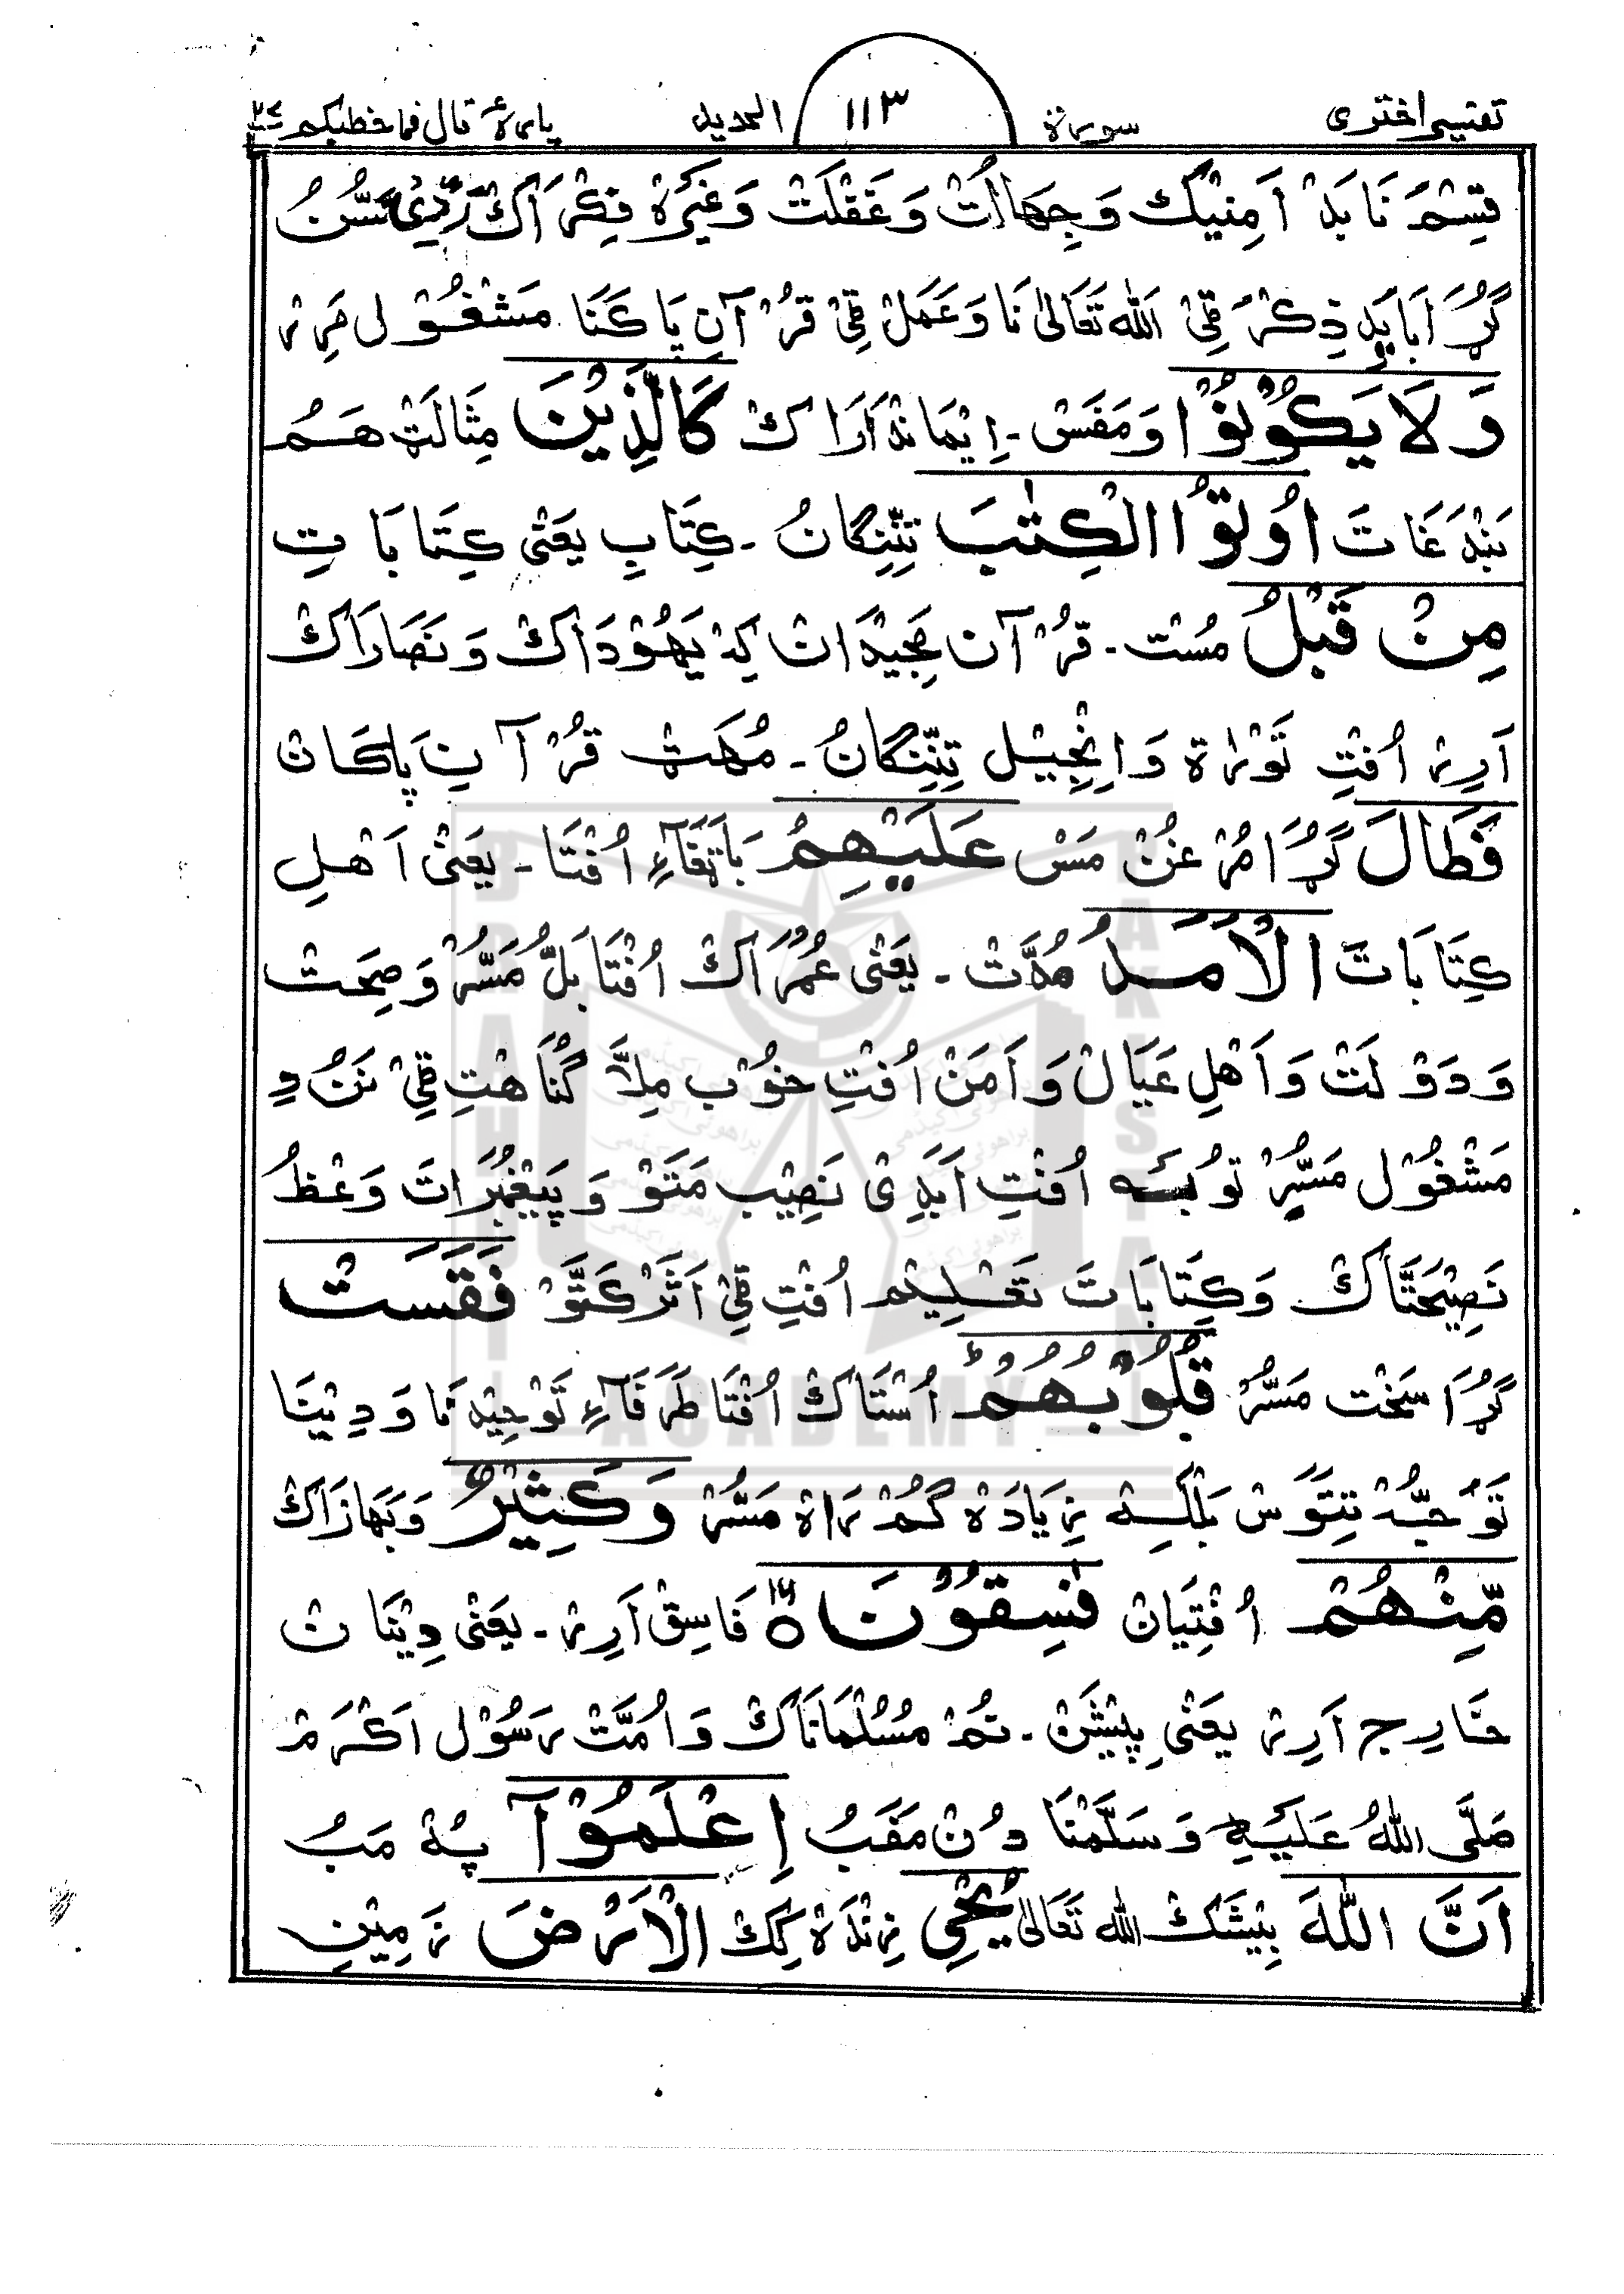 تفسیر اختری سورة ۱۱۳ الحدید پارۀ قال فما خطبکم ۲۷
قِسْمَ نَا بَدْ اَمِنِیْک وَ جِهَالَتْ وَ غَفْلَتْ وَ غَیْرَهْ فِکْرَ اَکْ رَدِّیْ مَسُّنُ
گُڑَا بَایَدِ ذِکْرَ ٹِیْ اَللّٰه تَعَالیٰ نَا وَ عَمَلْ ٹِیْ قُرْآنِ پَاکَنَا مَشْغُوْل مَرِرْ
وَلَا یَکُوْنُوْا وَ مَفَسْ ۔ اِیْمَانْدَارَاکْ کَالَّذِیْنَ مِثَالَتْ هَمُ
بَنْدَغَاتَ اُوْتُوا الْکِتٰبَ تِنِّنْگَانُ ۔ کِتَابِ یَعْنٰی کِتَابَاتِ
مِنْ قَبْلُ مُسْت ۔ قُرْآن مَجِیْدَانْ کِهْ یَهُوْدَاکْ وَ نَصَارَاکْ
اَرِرْ اُفْتِ تَوْرٰاة وَ اِنْجِیْل تِنِّنْگَانُ ۔ مُهَتْ قُرْآنِ پَاکَانْ
فَطَالَ گُڑَا مُرْغُنْ مَسْ عَلَیْهِمُ بَاتِغَآءِ اُفْتَا ۔ یَعْنٰی اَهْلِ
کِتَابَاتَ الْاَمَدُ مُدَّتْ ۔ یَعْنٰی عُمْرَاکْ اُفْتَا بَلُّ مَسُّرْ وَ صِحَتْ
وَ دَوْلَتْ وَ اَهْلِ عَیَالْ وَ اَمَنْ اُفْتِ خُوْب مِلَّا گُنَاهتِ ٹِیْ نَنْ دٍ
مَشْغُوْل مَسُّرْ تَوْبَسَه اُفْتِ اَبَدِیْ نَصِیْب مَتَوْ وَ پَیْغَمْبَرَاتَ وَعْظُ
نَصِیْحَتَّاکْ وَ کِتَابَاتَ تَعْلِیْم اُفْتِ ٹِیْ اَثَرْ کَتَّوْ فَقَسَتْ
گُڑَا سَخْت مَسُّرْ قُلُوْبُهُمْ اُسْتَاکْ اُفْتَا طَرَفَآءِ تَوْحِیْد نَا وَ دِیْنَنَا
تَوَجُّهْ تِتَوْسْ بَلْکِهْ زِیَادَهْ گُمْرَاهْ مَسُّرْ وَ کَثِیْرٌ وَ بَهَازَاکْ
مِّنْهُمْ اُفْتِیَانْ فٰسِقُوْنَ ۱۶ فَاسِقْ اَرِرْ ۔ یَعْنٰی دِیْنَانْ
خَارِج اَرِرْ یَعْنٰی پِیْشَنْ ۔ نُمْ مُسُلْمَانَاکْ وَ اُمَّتْ رَسُوْلِ اَکْرَمْ
صَلَّی اللّٰهُ عَلَیْهِ وَسَلَّمْنَا دُنْ مَفَبُ اِعْلَمُوْآ پُهْ مَبُ
اَنَّ اللّٰهَ بِیْشَکْ اللّٰه تَعَالیٰ یُحْیِ زِنْدَهْ کِکْ الْاَرْضَ زَمِیْنِ